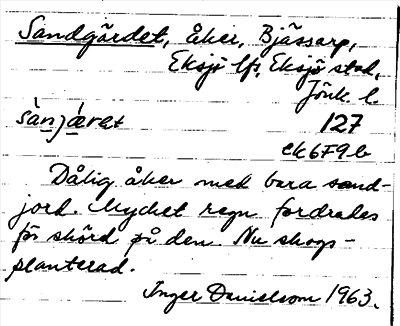 Sandgärdet, åker, Bjässarp,
Eksjö lfs, Eksjö stad,
Jönk. l.
sànjæ̀ret 127
ek 6F9b
Dålig åker med bara sand-
jord. Mycket regn fordrades
för skörd på den. Nu skogs-
planterad.
Inger Danielsson 1963.